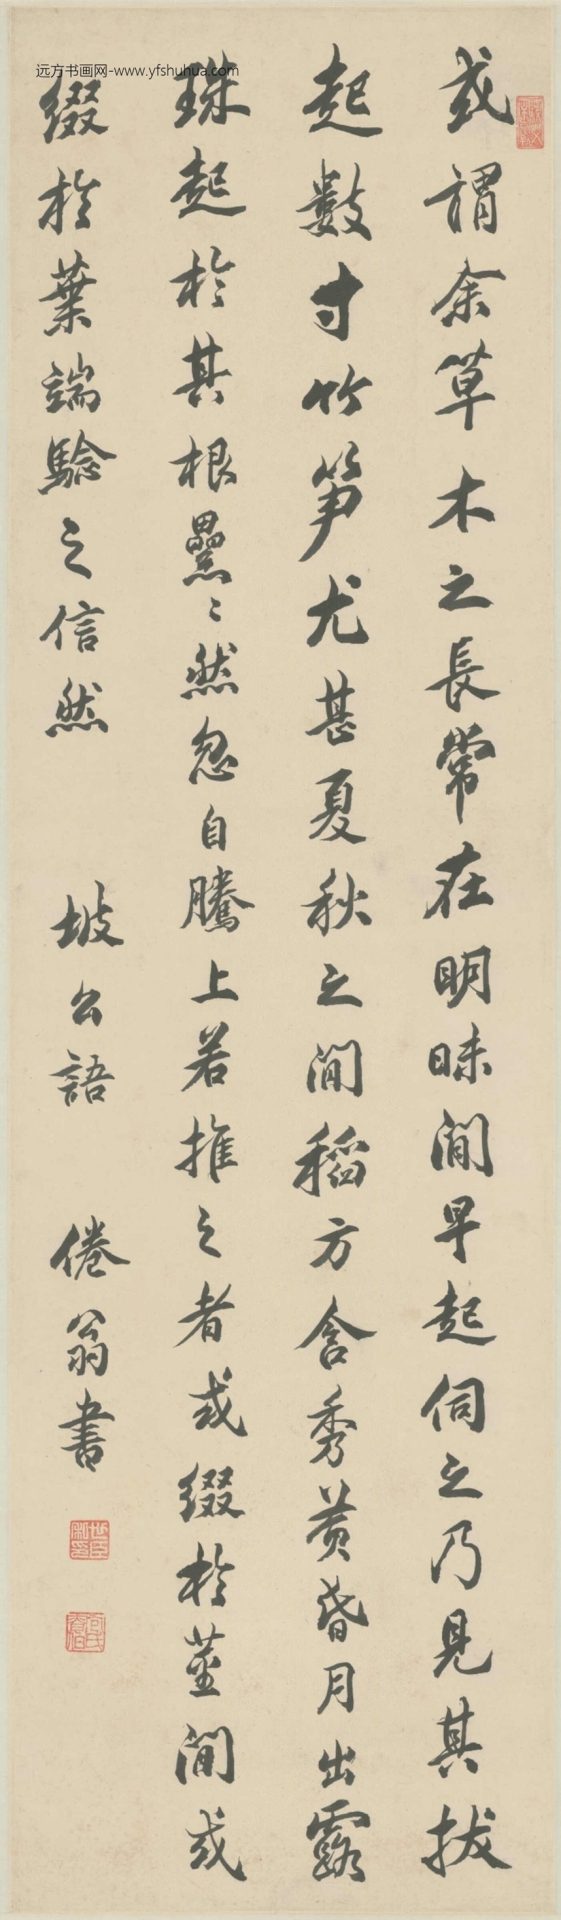 远方书画网-www.yfshuhua.com
或謂余草木之長常在明昧間早起伺之乃見其拔
起數寸竹笋尤甚夏秋之間稻方含秀黃昏月出露
珠起於其根纍〻然忽自騰上若推之者或綴於莖間或
綴於葉端驗之信然 坡公語 倦翁書